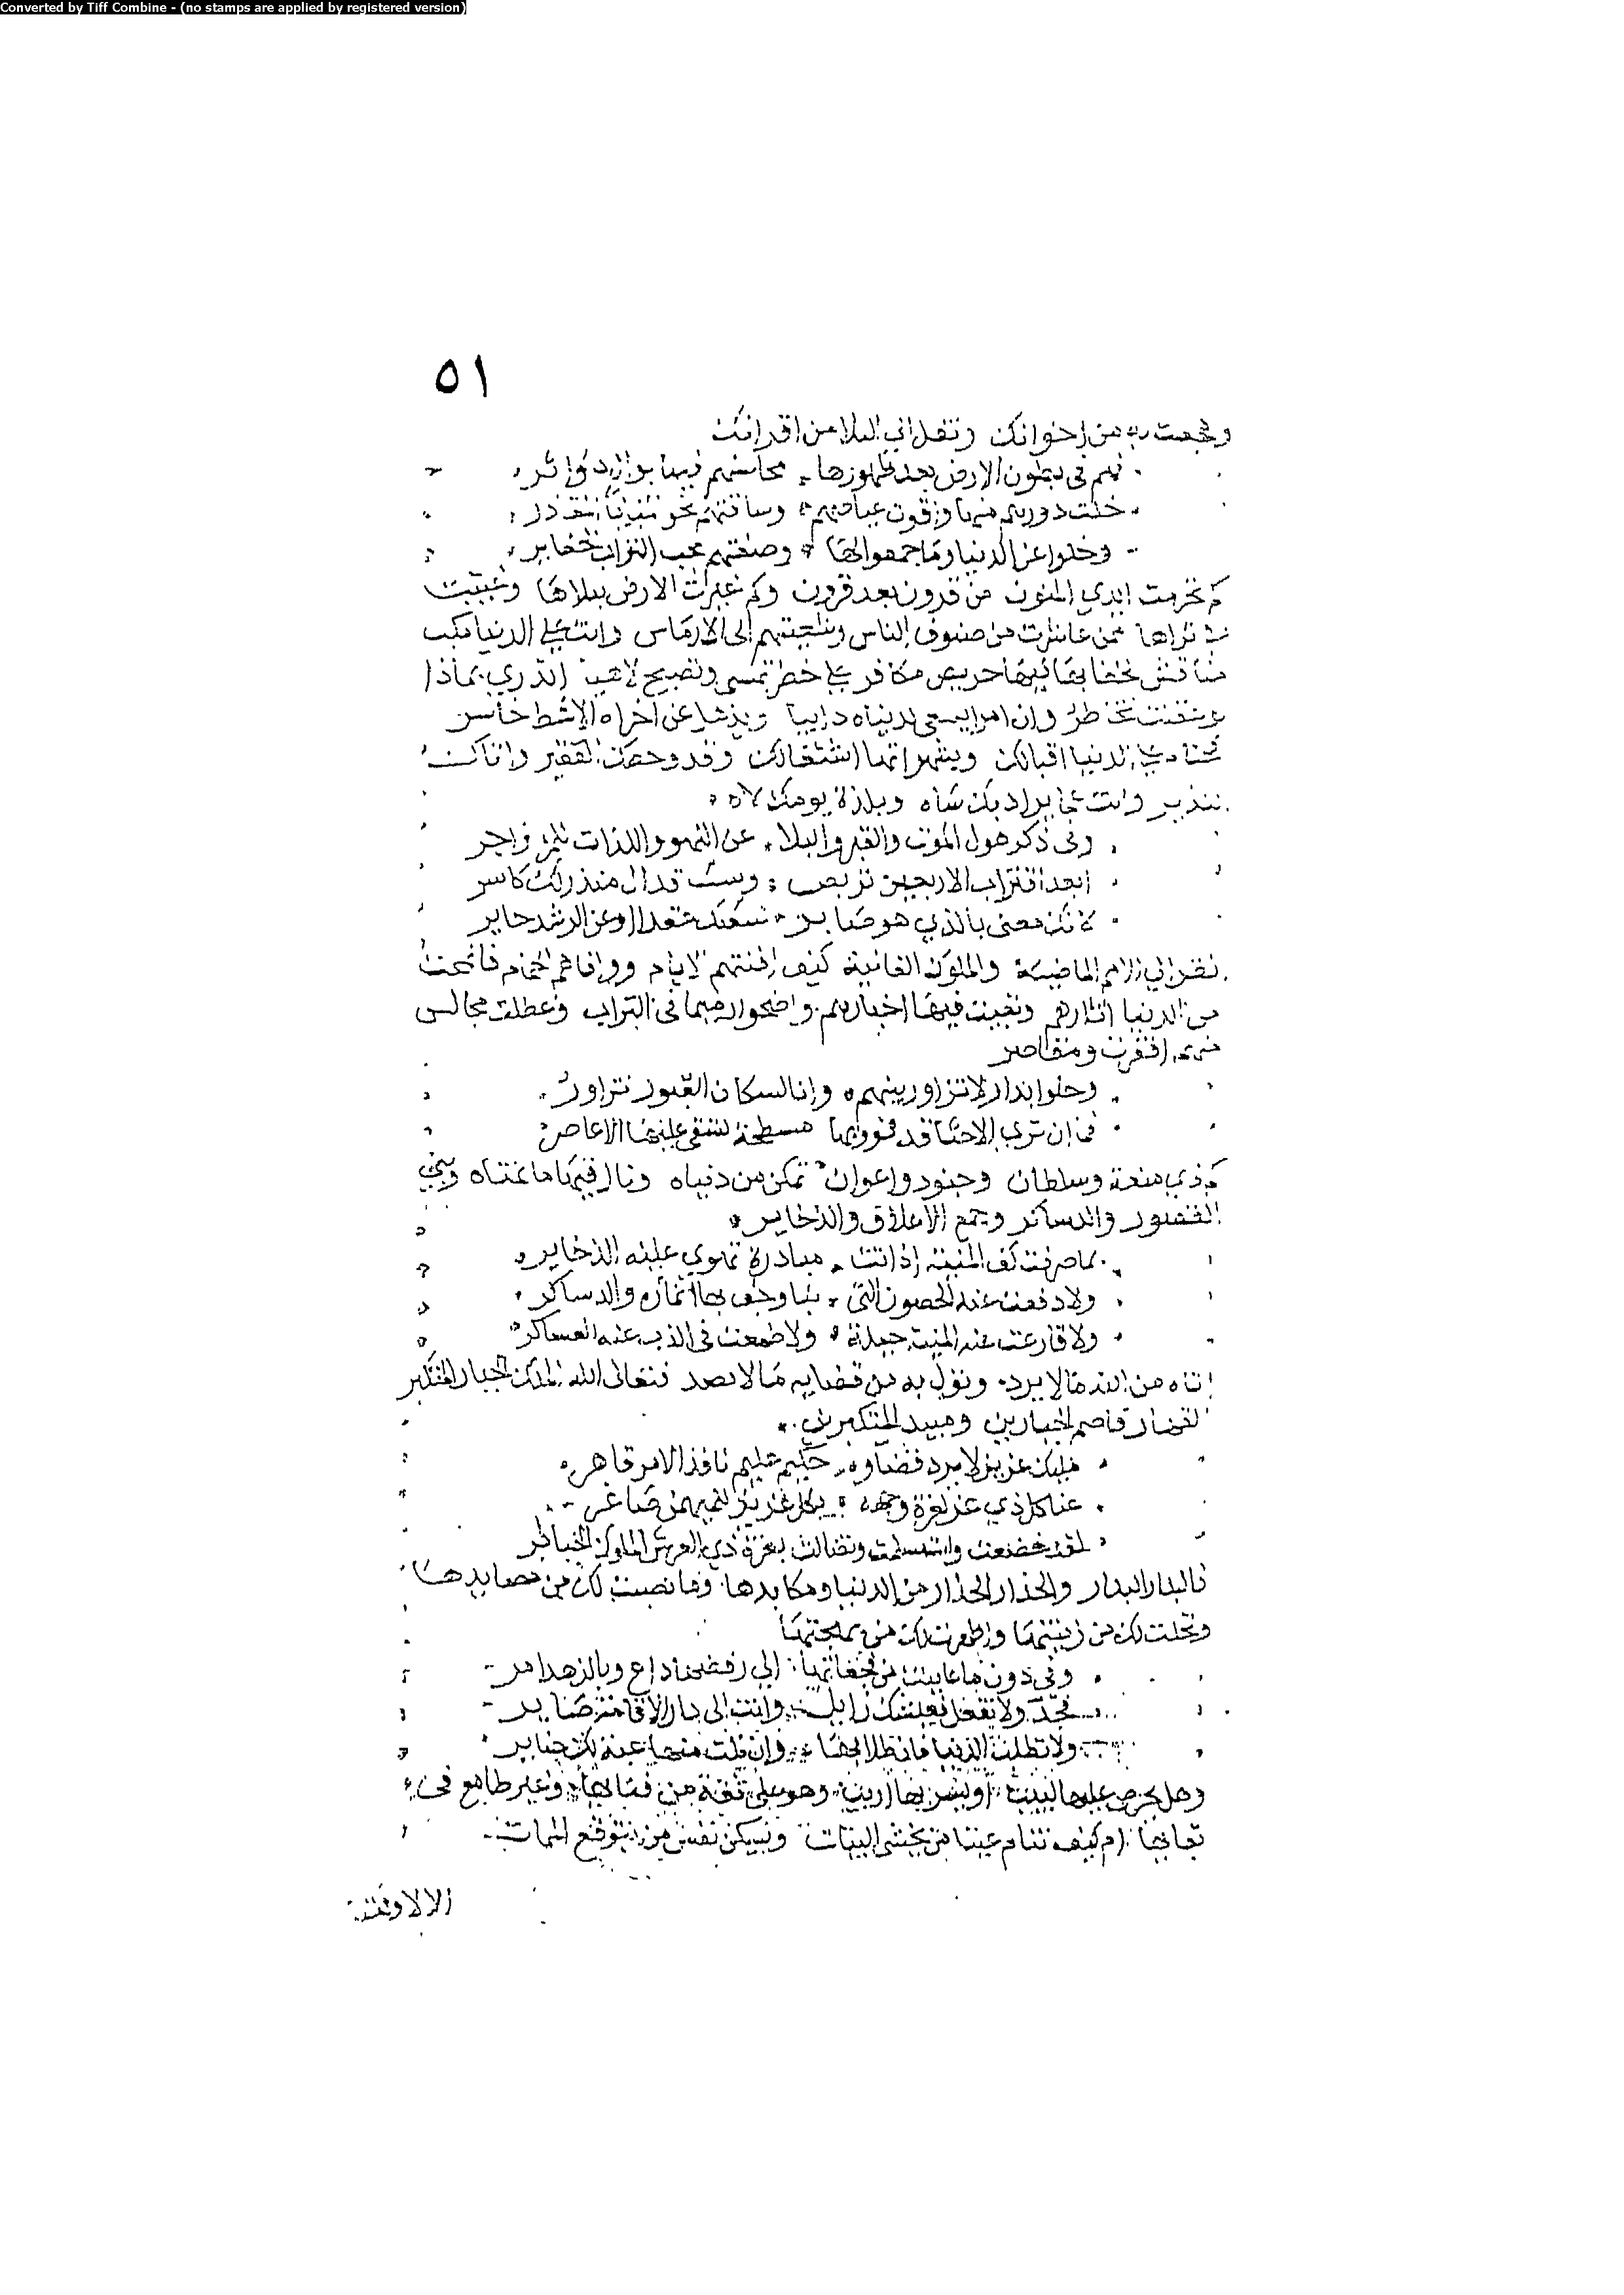 Converted by Tiff Combine - (no stamps are applied by registered version)
٥١
وفجعت به من اخوانك ونقل الي البلا من اقرانك
فهم في بطون الارض بعد ظهورها محاسنهم فيها بوال دواثر
خلت دورهم منها واقوت عراصهم وساقتهم نحو
وخلوا عن الدنيا وما جمعوا لها وضمتهم تحت التراب الحفاير
كم تخرمت ايدي المنون من قرون بعد قرون وكم غيرت الارض ببلاها وغيبت
ثراها ممن عاشرت من صنوف الناس وشيعتهم الى الارماس وانت على الدنيا مكب
حريص مكاثر على خطر تمسي وتصبح لاهيا اتدري بماذا
وان امرا يسعى لدنياه دايبا ويذهل عن اخراه لاشك خاسر
الدنيا اقبالك وبشهواتها اشتغالك وقد وخطك القتير واتاك
النذير وانت عما يراد بك ساه وبلذة يومك لاه
وفي ذكر هول الموت والقبر والبلا عن اللهو واللذات للمرء زاجر
ابعد اقتراب الاربعين تربص وشيب قذال منذر لك كاسر
كانك معنى بالذي هو ضاير لنفسك عمدا او عن الرشد حاير
انظر الي الامم الماضية والملوك الفانية كيف افنتهم الايام ووافاهم الحمام فانمحت
من الدنيا اثارهم وبقيت فيها اخبارهم واضحوا رميما في التراب وعطلت مجالس
منهم اقفرت ومقاصر
وحلوا بدار لا تزاور بينهم وانا لسكان القبور تزاور
فما ان ترى الا جثا قد ثووا بها مسطحة تسفى عليها الاعاصر
كم ذي منعة وسلطان وجنود واعوان تمكن من دنياه ونال فيها ما تمناه وبنى
القصور والدساكر وجمع الاعلاق والذخاير
فما صرفت كف المنية اذ اتت مبادرة تهوي عليه الذخاير
ولا دفعت عنه الحصون التي بنا وحف بها انهاره والدساكر
ولا قارعت عنه المنية حيلة ولا طمعت في الذب عنه العساكر
اتاه من الله ما لا يرد ونزل به من قضايه ما لا يصد فتعالى الله الملك الجبار المتكبر
القهار قاصم الجبارين ومبيد المتكبرين
مليك عزيز لا يرد قضاوه حكيم عليم نافذ الامر قاهر
عنا كل ذي عز لعزة وجهه فكل عزيز للمهيمن صاغر
لقد خضعت واستسلمت وتضالت بعزة ذي العرش الملوك الجبابر
فالبدار البدار والحذار الحذار من الدنيا ومكايدها وما نصبت لك من مصايدها
وتحلت لك من زينتها واظهرت لك من بهجتها
وفي دون ما عاينت من فجعاتها الى رفضها داع وبالزهد امر
فجد ولا تغفل فعيشك زايل وانت الى دار الاقامة صاير
ولا تطلب الدنيا فان طلابها وان نلت منها غبه لك ضاير
وهل يحرص عليها لبيب او يسر بها اريب وهو على ثقة من فنايها وغير طامع في
بقايها ام كيف تنام عينا من يخشى البيات وتسكن نفس من يتوقع الممات
الا لا ولكنا